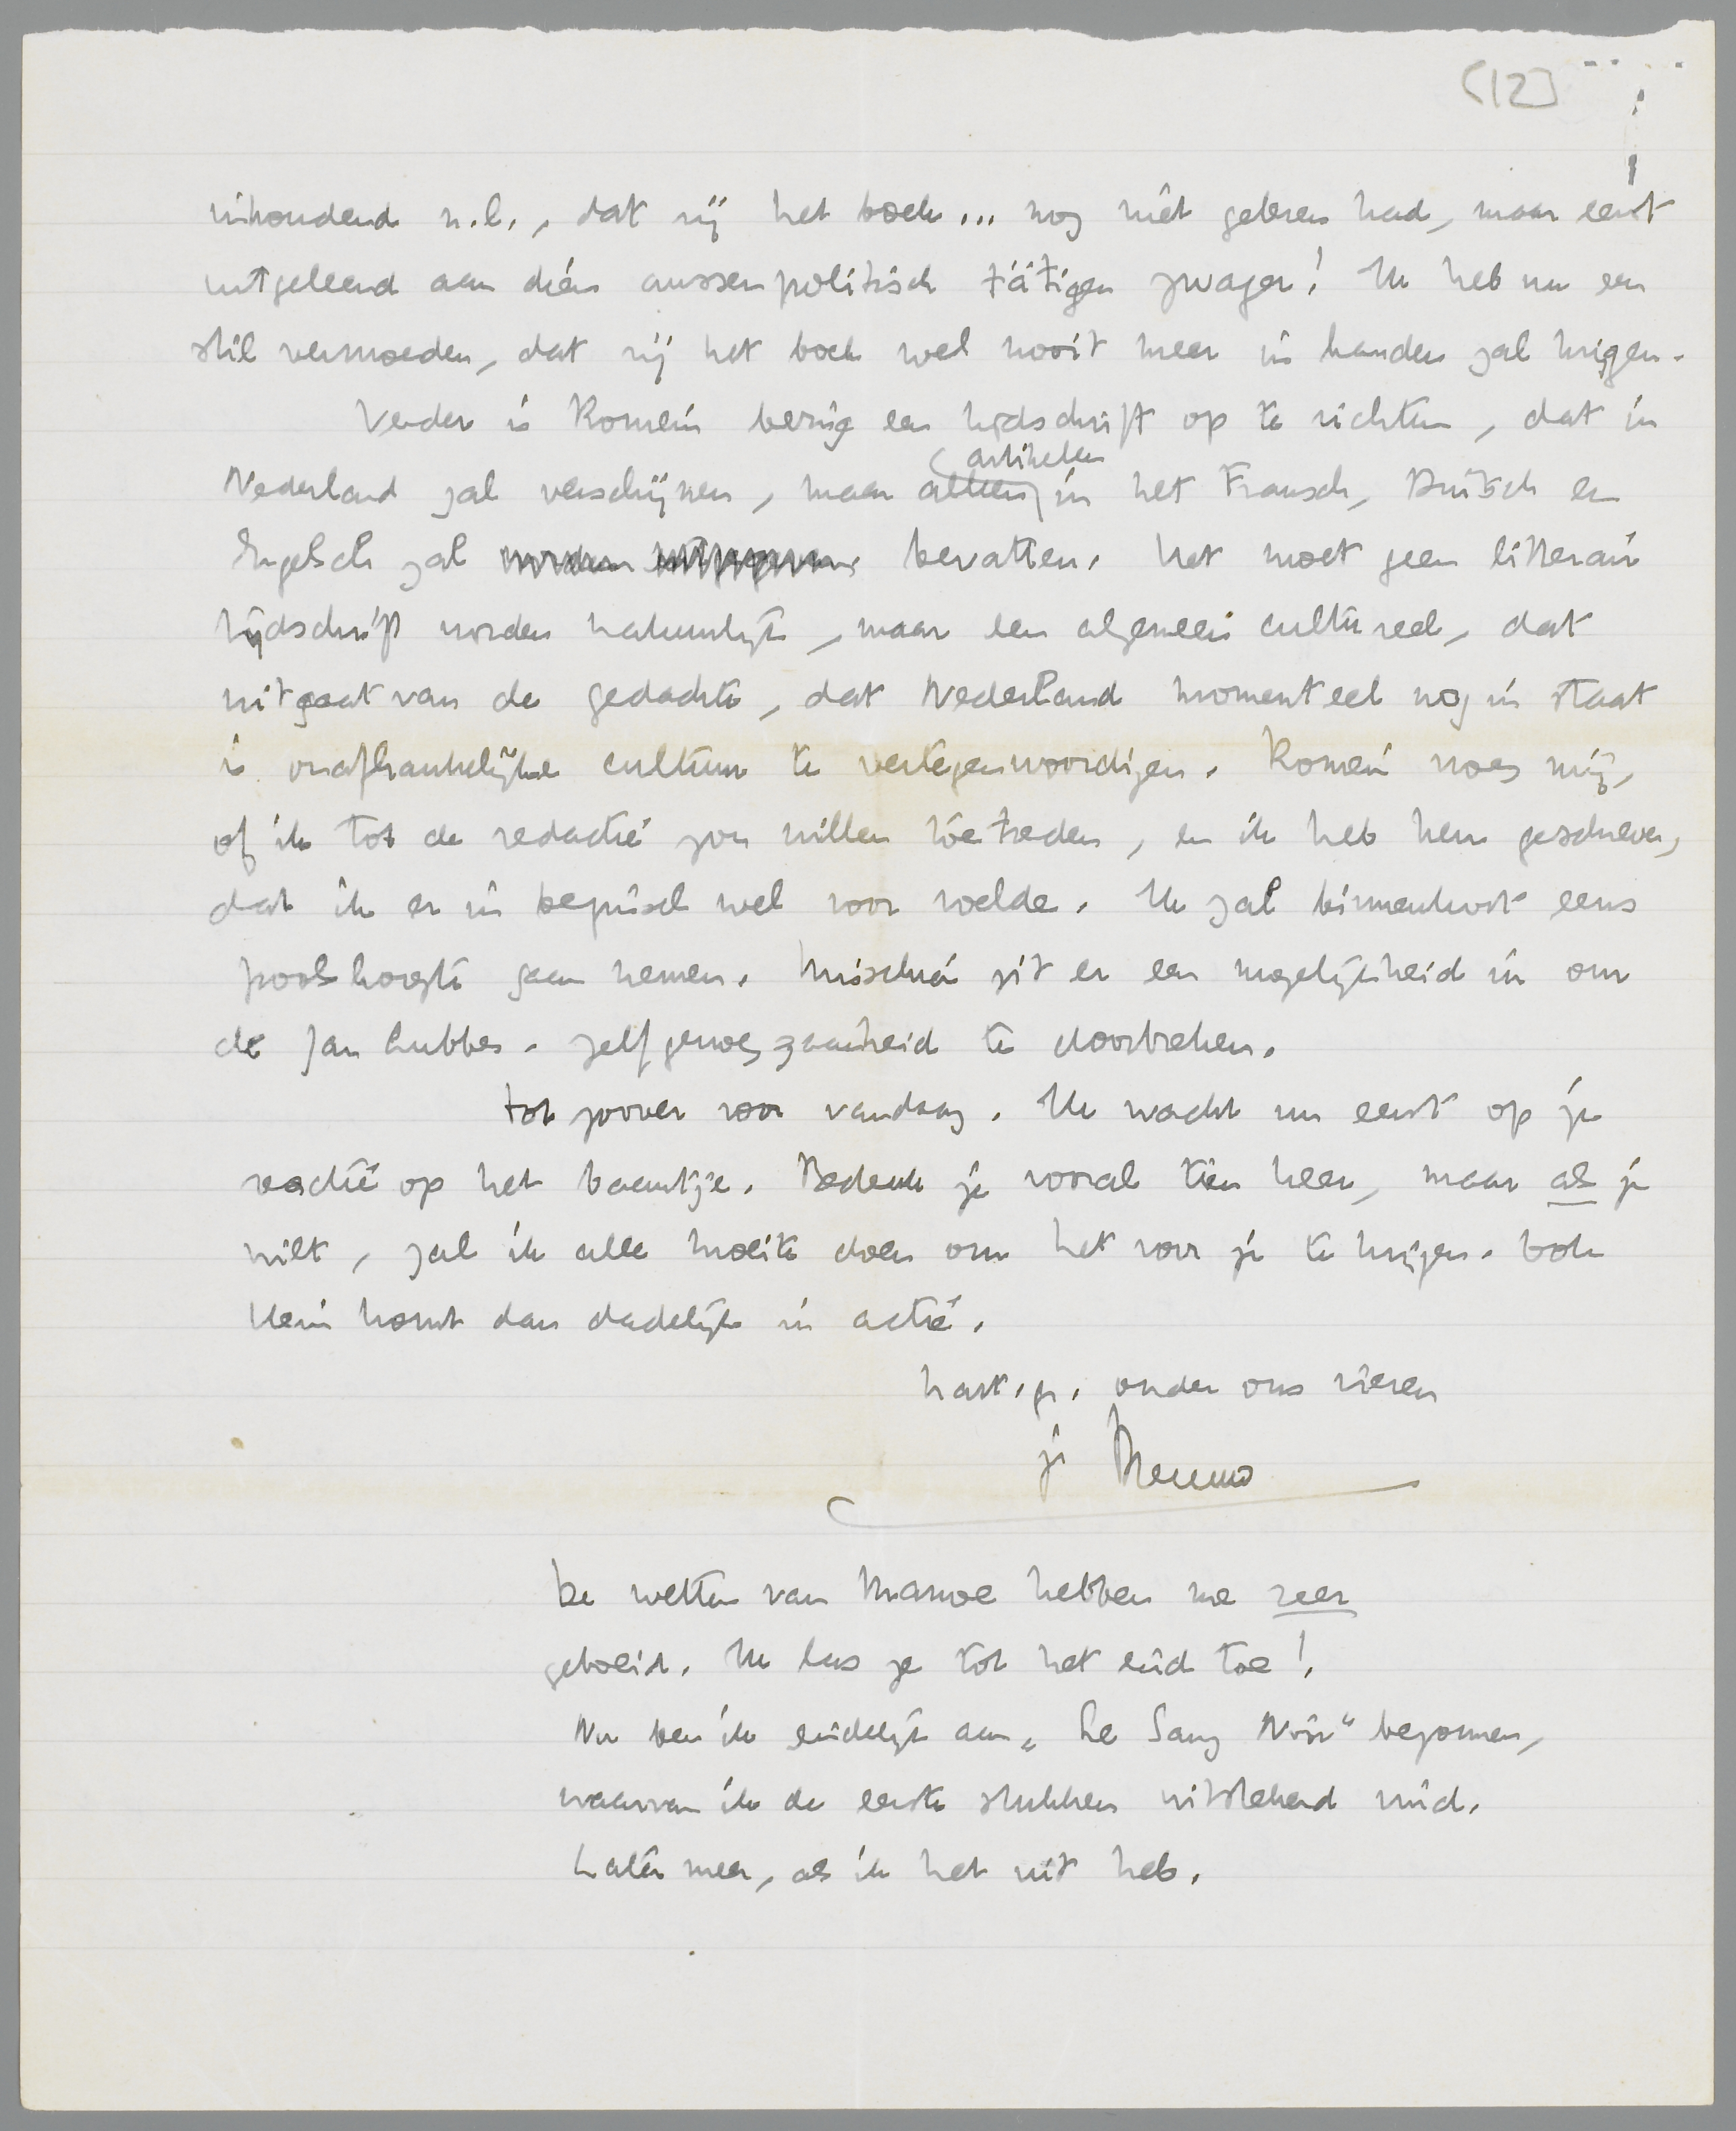 [12]
inhoudend n.l., dat zij het boek... nog niet gelezen had, maar eerst
uitgeleend aan dien aussenpolitisch tätigen zwager! Ik heb nu een
stil vermoeden, dat zij het boek wel nooit meer in handen zal krijgen.
Verder is Romein bezig een tijdschrift op te richten, dat in
artikelen
Nederland zal verschijnen, maar alleen in het Fransch, Duitsch en
Engelsch zal worden bevatten. Het moet geen litterair
tijdschrift worden natuurlijk, maar een algemeen cultureel, dat
uitgaat van de gedachte, dat Nederland momenteel nog in staat
is onafhankelijke cultuur te vertegenwoordigen. Romein vroeg mij,
of ik tot de redactie zou willen toetreden, en ik heb hem geschreven,
dat ik er in beginsel wel voor voelde. Ik zal binnenkort eens
poolshoogte gaan nemen. Misschien zit er een mogelijkheid in om
de Jan Lubbes-zelfgenoegzaamheid te doorbreken.
Tot zoover voor vandaag. Ik wacht nu eerst op je
reactie op het baantje. Bedenk je vooral tien keer, maar als je
wilt, zal ik alle moeite doen om het voor je te krijgen. Ook
Klein komt dan dadelijk in actie.
hart. gr. onder ons vieren
je Menno
De wetten van Manoe hebben me zeer
geboeid. Ik las ze tot het eind toe!
Nu ben ik eindelijk aan „Le Sang Noir" begonnen,
waarvan ik de eerste stukken uitstekend vind.
Later meer, als ik het uit heb.